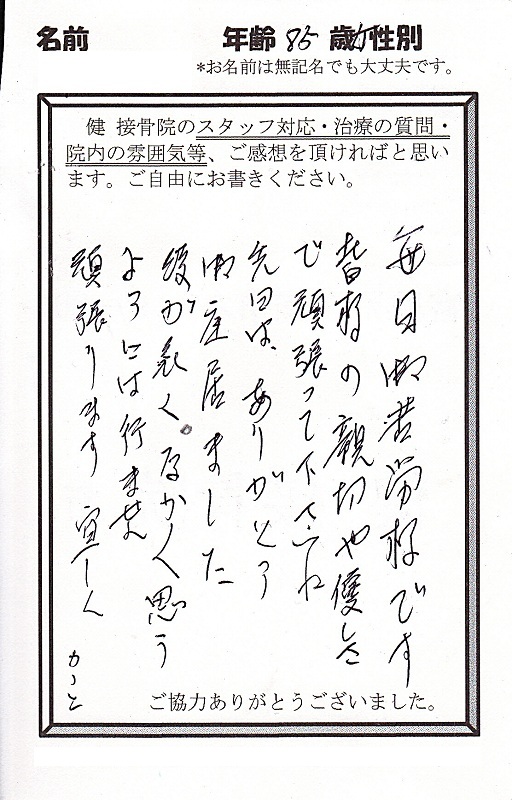 名前 年齢 85 歳 性別
*お名前は無記名でも大丈夫です。
健 接骨院のスタッフ対応・治療の質問・
院内の雰囲気等、ご感想を頂ければと思い
ます。ご自由にお書きください。
毎日御苦労様です
皆様の親切や優しさ
で頑張って下さいね
先日は、ありがとう
御座居ました
頑張ります
ように行ません
ご協力ありがとうございました。